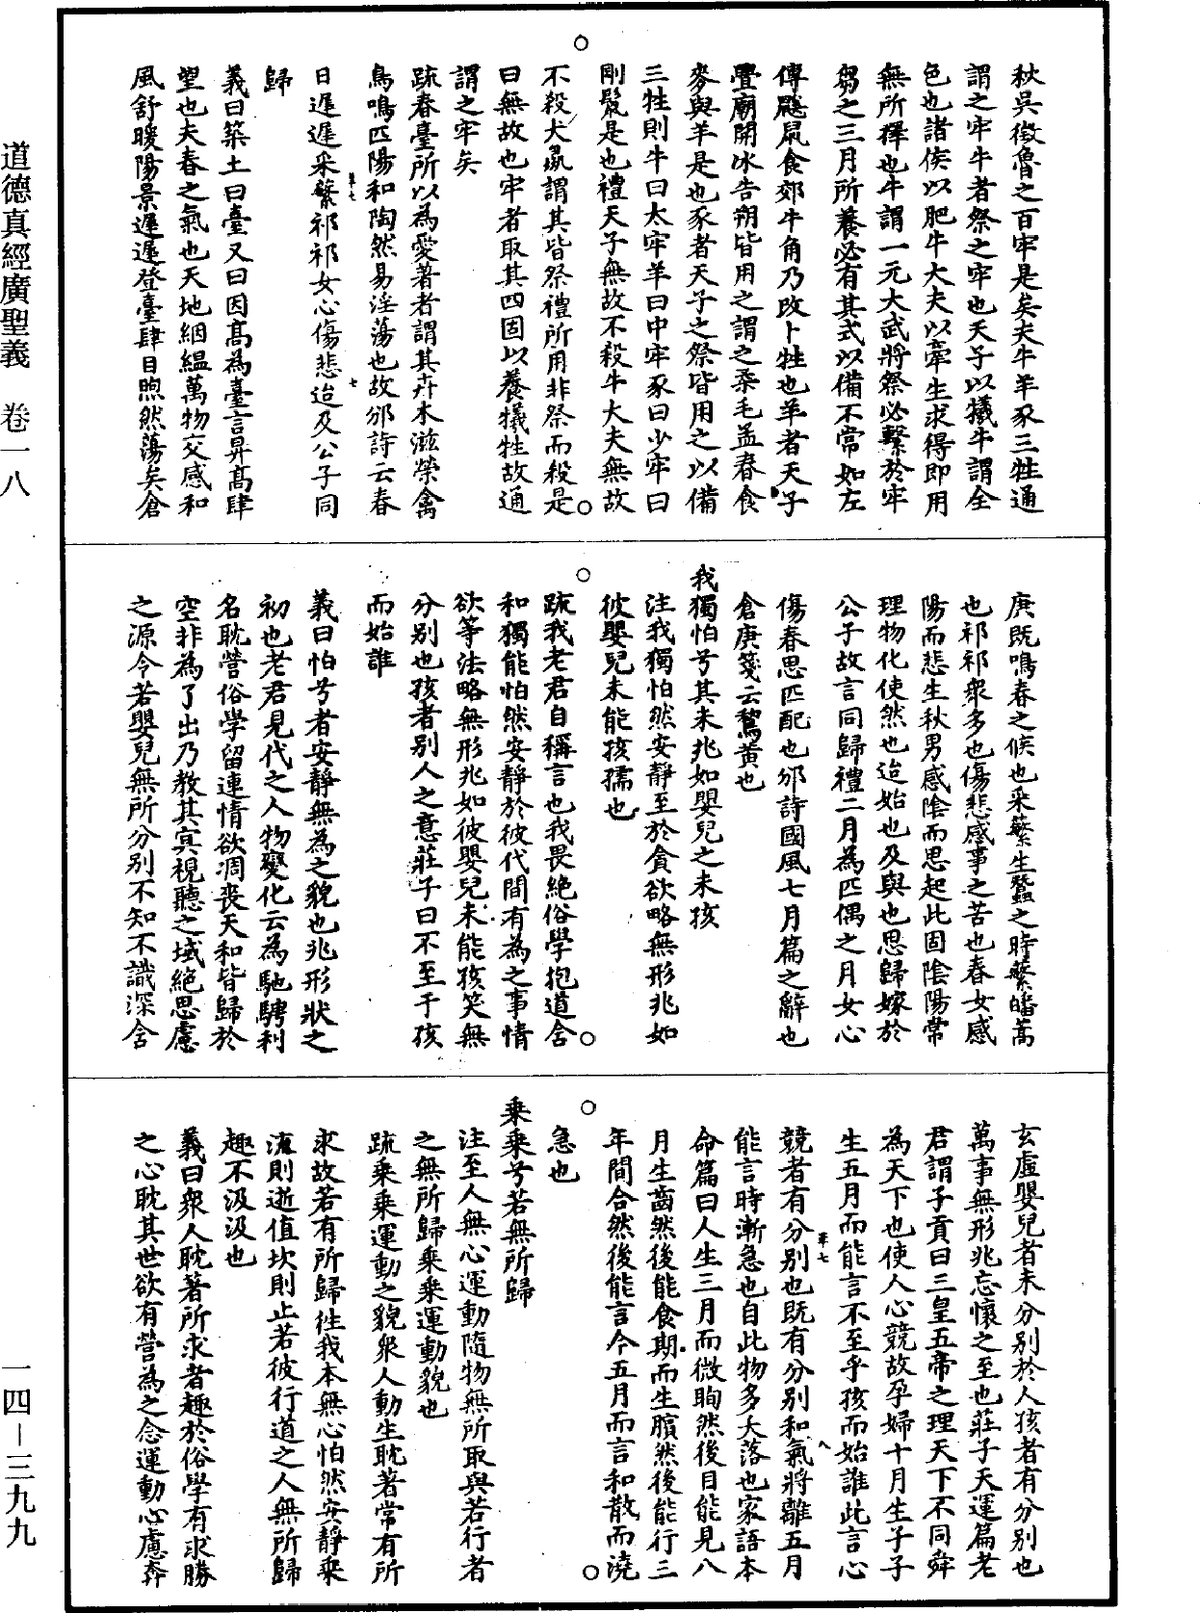 秋吳徵魯之百牢是矣夫牛羊豕三牲通
謂之牢牛者祭之牢也天子以犧牛謂全
色也諸侯以肥牛大夫以牽生求得即用
無所擇也牛謂一元大武將祭必繫於牢
芻之三月所養必有其式以備不常如左
傳鼷鼠食郊牛角乃改卜牲也羊者天子
舋廟開冰告朔皆用之謂之柔毛孟春食
麥與羊是也豕者天子之祭皆用之以備
三牲則牛曰太牢羊曰中牢豕曰少牢曰
剛鬣是也禮天子無故不殺牛大夫無故
不殺犬豕謂其皆祭禮所用非祭而殺是
曰無故也牢者取其四固以養犧牲故通
謂之牢矣
疏春臺所以為愛著者謂其卉木滋榮禽
鳥鳴匹陽和陶然易淫蕩也故邠詩云春
日遲遲采蘩祁祁女心傷悲迨及公子同
歸
義曰築土曰臺又曰因高為臺言昇高肆
望也夫春之氣也天地絪縕萬物交感和
風舒暖陽景遲遲登臺肆目煦然蕩矣倉
庚既鳴春之候也采蘩生蠶之時蘩皤蒿
也祁祁眾多也傷悲感事之苦也春女感
陽而悲生秋男感陰而思起此固陰陽常
理物化使然也迨始也及與也思歸嫁於
公子故言同歸禮二月為匹偶之月女心
傷春思匹配也邠詩國風七月篇之辭也
倉庚箋云鶩黄也
我獨怕兮其未兆如嬰兒之未孩
注我獨怕然安靜至於貪欲略無形兆如
彼嬰兒未能孩孺也
疏我老君自稱言也我畏絕俗學抱道含
和獨能怕然安靜於彼代間有為之事情
欲等法略無形兆如彼嬰兒未能孩笑無
分別也孩者別人之意莊子曰不至于孩
而始誰
義曰怕兮者安靜無為之貌也兆形狀之
初也老君見代之人物變化云為馳騁利
名耽營俗學留連情欲凋喪天和皆歸於
空非為了出乃教其㝠視聽之域絕思慮
之源令若嬰兒無所分別不知不識深含
玄虛嬰兒者未分別於人孩者有分別也
萬事無形兆忘懷之至也莊子天運篇老
君謂子貢曰三皇五帝之理天下不同舜
為天下也使人心競故孕婦十月生子子
生五月而能言不至乎孩而始誰此言心
競者有分別也既有分別和氣將離五月
能言時漸急也自此物多夭落也家語本
命篇曰人生三月而微眴然後目能見八
月生齒然後能食期而生臏然後能行三
年間合然後能言今五月而言和散而澆
急也
乘乘兮若無所歸
注至人無心運動隨物無所取與若行者
之無所歸乘乘運動貌也
疏乘乘運動之貌眾人動生耽著常有所
求故若有所歸往我本無心怕然安靜乘
流則逝值坎則止若彼行道之人無所歸
趣不汲汲也
義曰眾人耽著所求者趣於俗學有求勝
之心耽其世欲有營為之念運動心慮奔
道德真經廣聖義 卷一八
一四—三九九